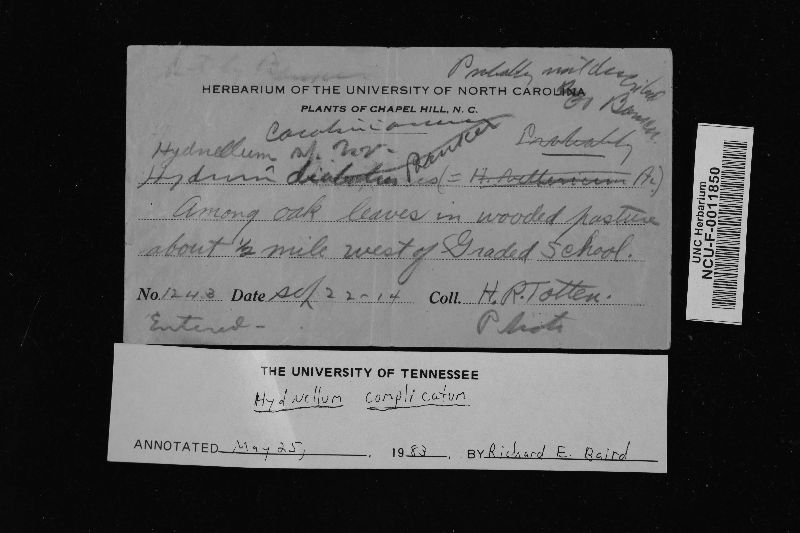 Probably
HERBARIUM OF THE UNIVERSITY OF NORTH CAROLINA
PLANTS OF CHAPEL HILL, N. C.
carolinianum
Probably
Hydnellum sp. nov- Banker
Hydnum
Among oak leaves in wooded pasture
about 1/2 mile west of Graded School.
No. 1243 Date Sept 22-14 Coll. H. R. Totten.
Entered - Photo
UNC Herbarium
NCU-F-0011850
THE UNIVERSITY OF TENNESSEE
Hydnellum complicatum
ANNOTATED May 25, 1983. BY Richard E. Baird